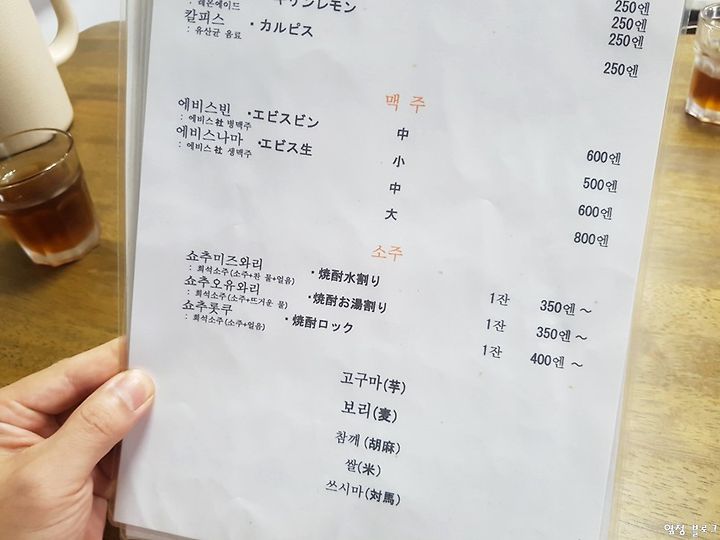 : 레몬에이드 ・キリンレモン 250엔
칼피스 ・カルピス 250엔
: 유산균 음료 250엔
250엔
맥 주
에비스빈 ・エビスビン 中 600엔
: 에비스社 병맥주
에비스나마 ・エビス生 小 500엔
: 에비스社 생맥주
中 600엔
大 800엔
소주
쇼추미즈와리 ・焼酎水割り 1잔 350엔 ～
: 희석소주(소주+찬 물+얼음)
쇼추오유와리 ・焼酎お湯割り 1잔 350엔 ～
: 희석소주(소주+뜨거운 물)
쇼추롯쿠 ・焼酎ロック 1잔 400엔 ～
: 희석소주(소주+얼음)
고구마(芋)
보리(麦)
참깨(胡麻)
쌀(米)
쓰시마(対馬)
블로그